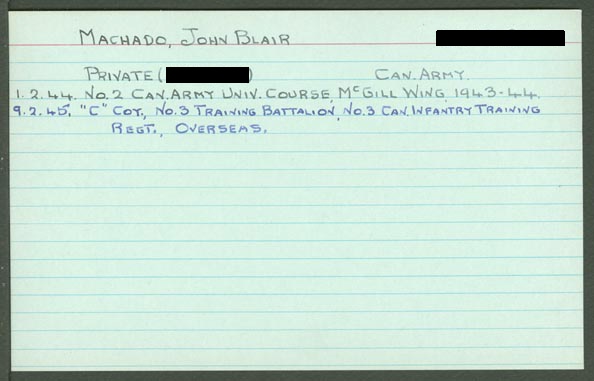 MACHADO, JOHN BLAIR
PRIVATE ( ) CAN. ARMY.
1.2.44. NO.2 CAN. ARMY UNIV. COURSE, MCGILL WING 1943-44.
9.2.45. "C" COY., NO.3 TRAINING BATTALION, NO.3 CAN. INFANTRY TRAINING
REGT., OVERSEAS.